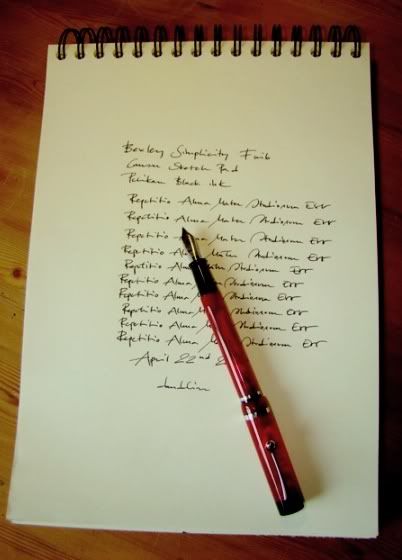 Bexley Simplicity Fwib
Canson Sketch Pad
Pelikan Black ink
Repetitio Alma Mater Studiorum Est
Repetitio Alma Mater Studiorum Est
Repetitio Alma Mater Studiorum Est
Repetitio Alma Mater Studiorum Est
Repetitio Alma Mater Studiorum Est
Repetitio Alma Studiorum Est
Repetitio Alma Studiorum Est
Repetitio Alma Studiorum Est
Repetitio Alma Studiorum Est
Repetitio Alma Studiorum Est
April 22nd 2